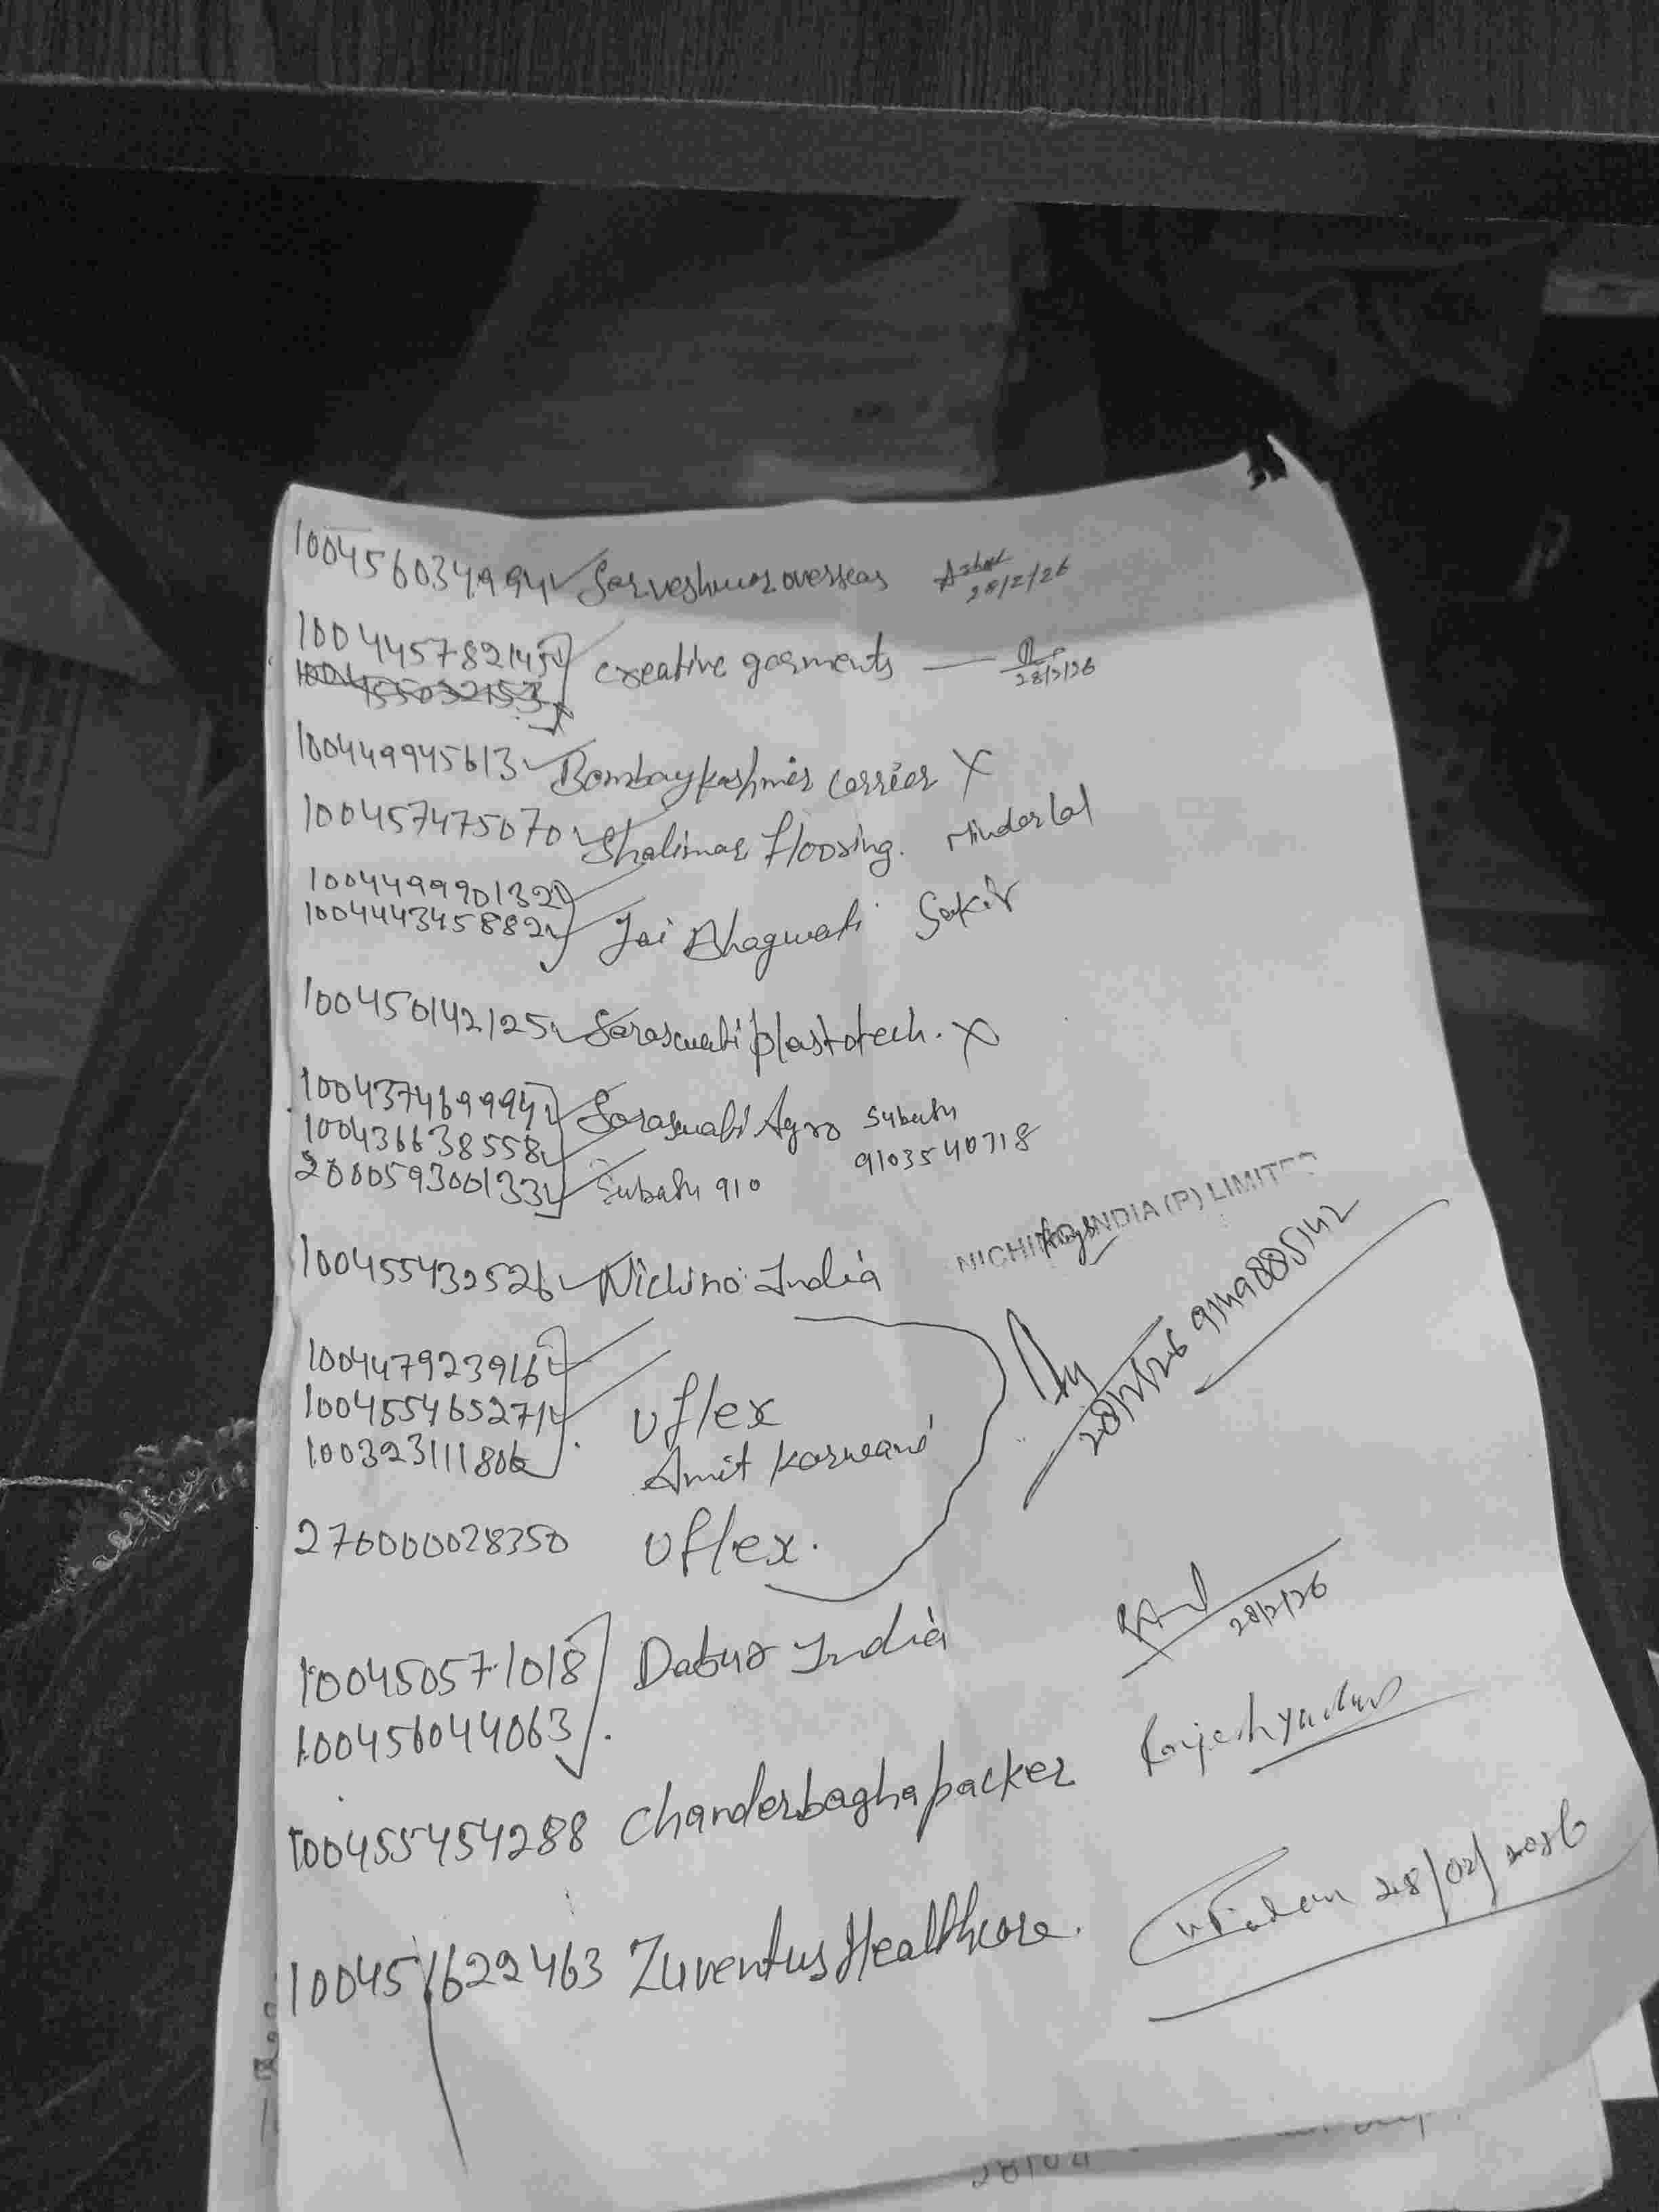 100456034994 Sarveshwar overseas Ashok 28/2/26
100445782145 creative garments — 28/2/26
100455032153
100449945613 Bombay Kashmir Carrier X
100457475070 Shalimar flooring. Minder lal
100449990132
100444345882 Jai Bhagwati Sakir
100450142125 Saraswati plastotech. X
100437469994 Saraswati Agro Subash
100436638558 9103540718
200059300133 Subash 910
NICHINO INDIA (P) LIMITED
100455432526 Nichino India
100447923916
100455465271 Uflex 28/2/26 9149885142
100323111806 Amit
270000028350 Uflex.
100450571018 Dabur India 28/2/26
100456044063
100455454288 Chanderbagha packer Rajesh yadav
100451622463 Zuventus Healthcare. 28/02/2026